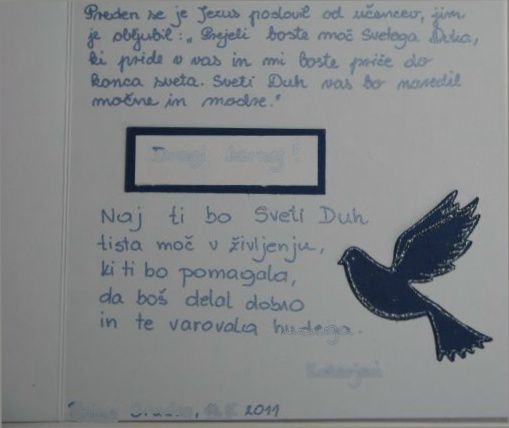 Preden se je Jezus poslovil od učencev, jim
je obljubil: „Prejeli boste moč Svetega Duha,
ki pride v vas in mi boste priče do
konca sveta. Sveti Duh vas bo naredil
močne in modre."
Dragi
Naj ti bo Sveti Duh
tista moč v življenju,
ki ti bo pomagala,
da boš delal dobro
in te varovala hudega.
2011